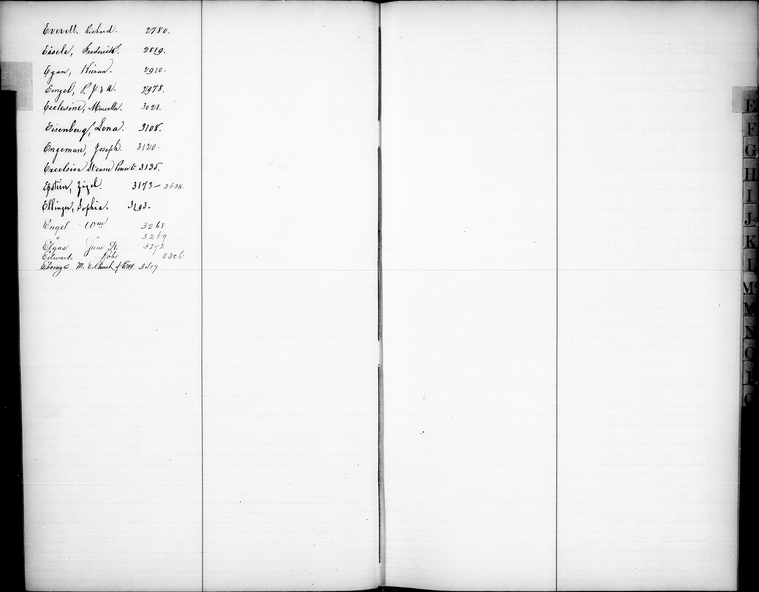 Everett, Richard. 2780.
Eisele, Frederick. 2819.
Egan, Kieran. 2910.
Engel, P. J & A. 2978.
Ecclesine, 3021.
Eisenberg, Lena. 3108.
Engeman, Joseph. 3120.
Excelsior Steam Power Co. 3135.
Epstein, Zigel. 3173 – 3638.
Ellinger, Sophia. 3183 –
Engel Wm 3268
" " 3269
Elgas Jane 3272
Edward Robt 3306
M. E. Church of 3317
E
F
G
H
I
J
K
L
M
N
O
P
Q